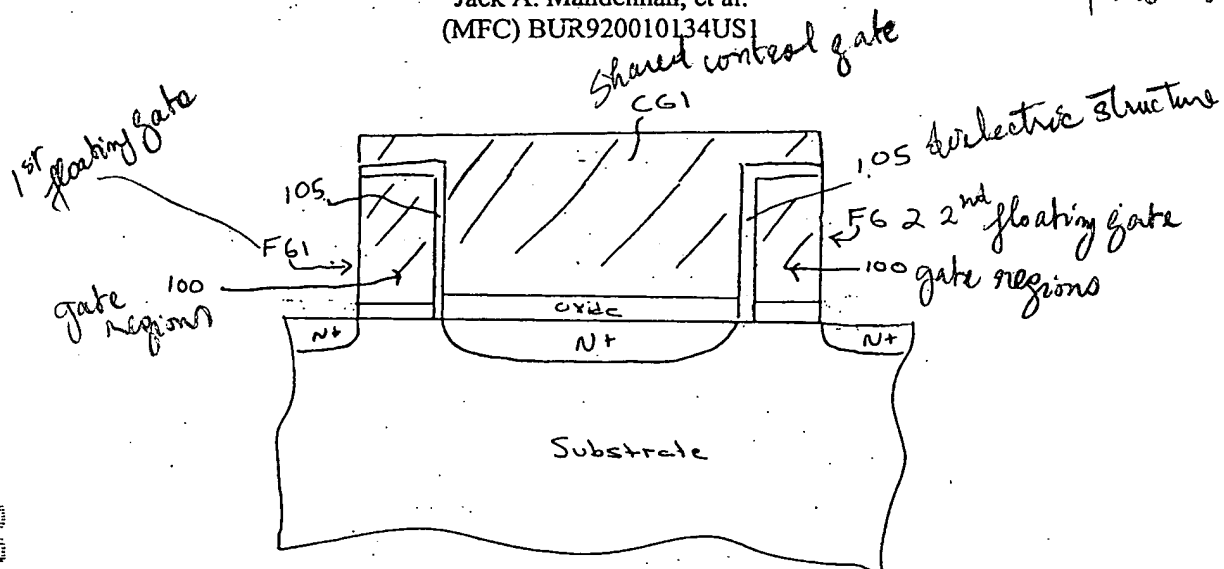 Jack A. Mandelman, et al.
(MFC) BUR920010134US1
Shared control gate
CG1
1st floating gate
105
105 dielectric structure
FG1
FG 2 2nd floating gate
100
gate regions
100 gate regions
oxide
N+
N+
N+
Substrate